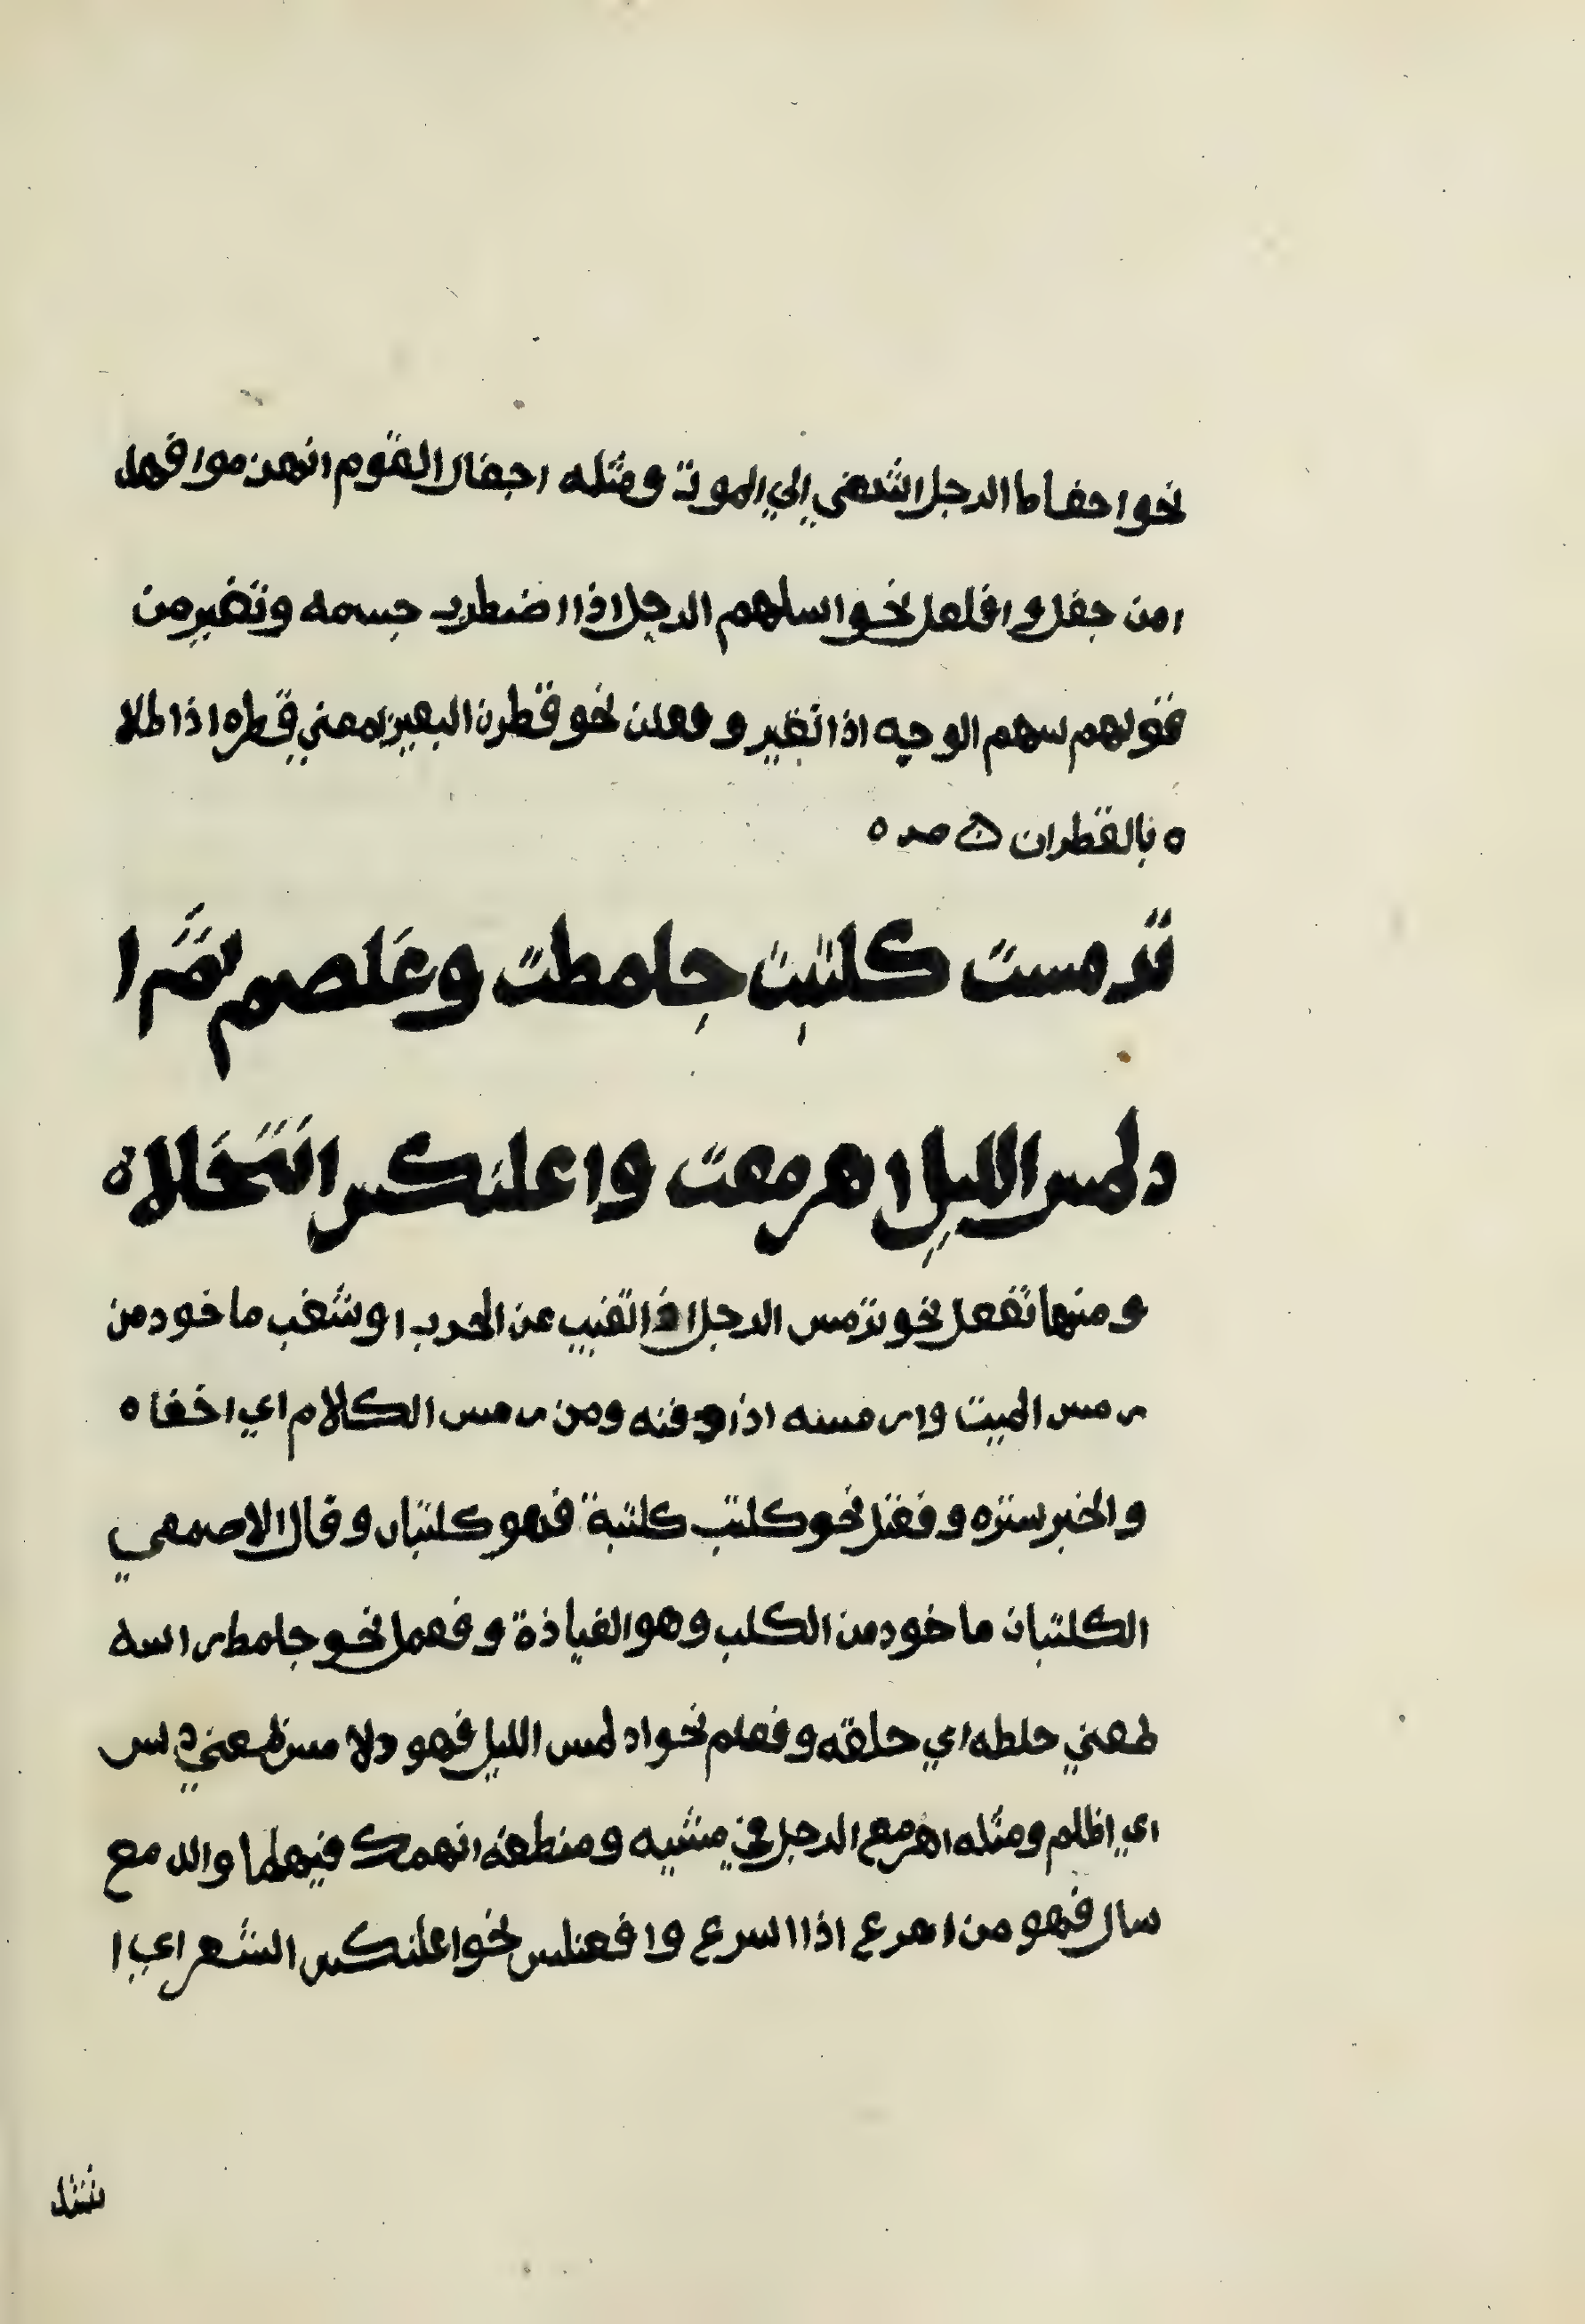 نحو احفاظ الرجل اشفي الي الموت ومثله اجفال القوم انهزموا فهما
من جفل وافلعل نحو اسلهم الرجل اذا اضطرب جسمه وتغير من
قولهم سهم الوجه اذا تغير وفعلن نحو قطرن البعير بمعني قطره اذا طلا
ه بالقطران ه ص ه
ترمست كلتبت جلمطت وغلصم ثم ا
دلمس الليل اهرمعت واعلنكس انتخلا ه
ومنها تفعل نحو ترمس الرجل اذا تغيب عن الحرب او شغب ماخود من
رمس الميت وارمسه اذا دفنه ومن رمس الكلام اي اخفاه
والخبر ستره وفعتل نحو كلتب كلتبة فهو كلتبان وقال الاصمعي
الكلتبان ماخود من الكلب وهو القيادة وفعمل نحو جلمط راسه
بمعني جلطه اي حلقه وفعلم نحو ادلمس الليل فهو دلامس بمعني دلس
اي اظلم ومثله اهرمع الرجل في مشيه ومنطقه انهمك فيهما والدمع
سال فهو من اهرع اذا اسرع وافعنلس نحو اعلنكس الشعر اي ا